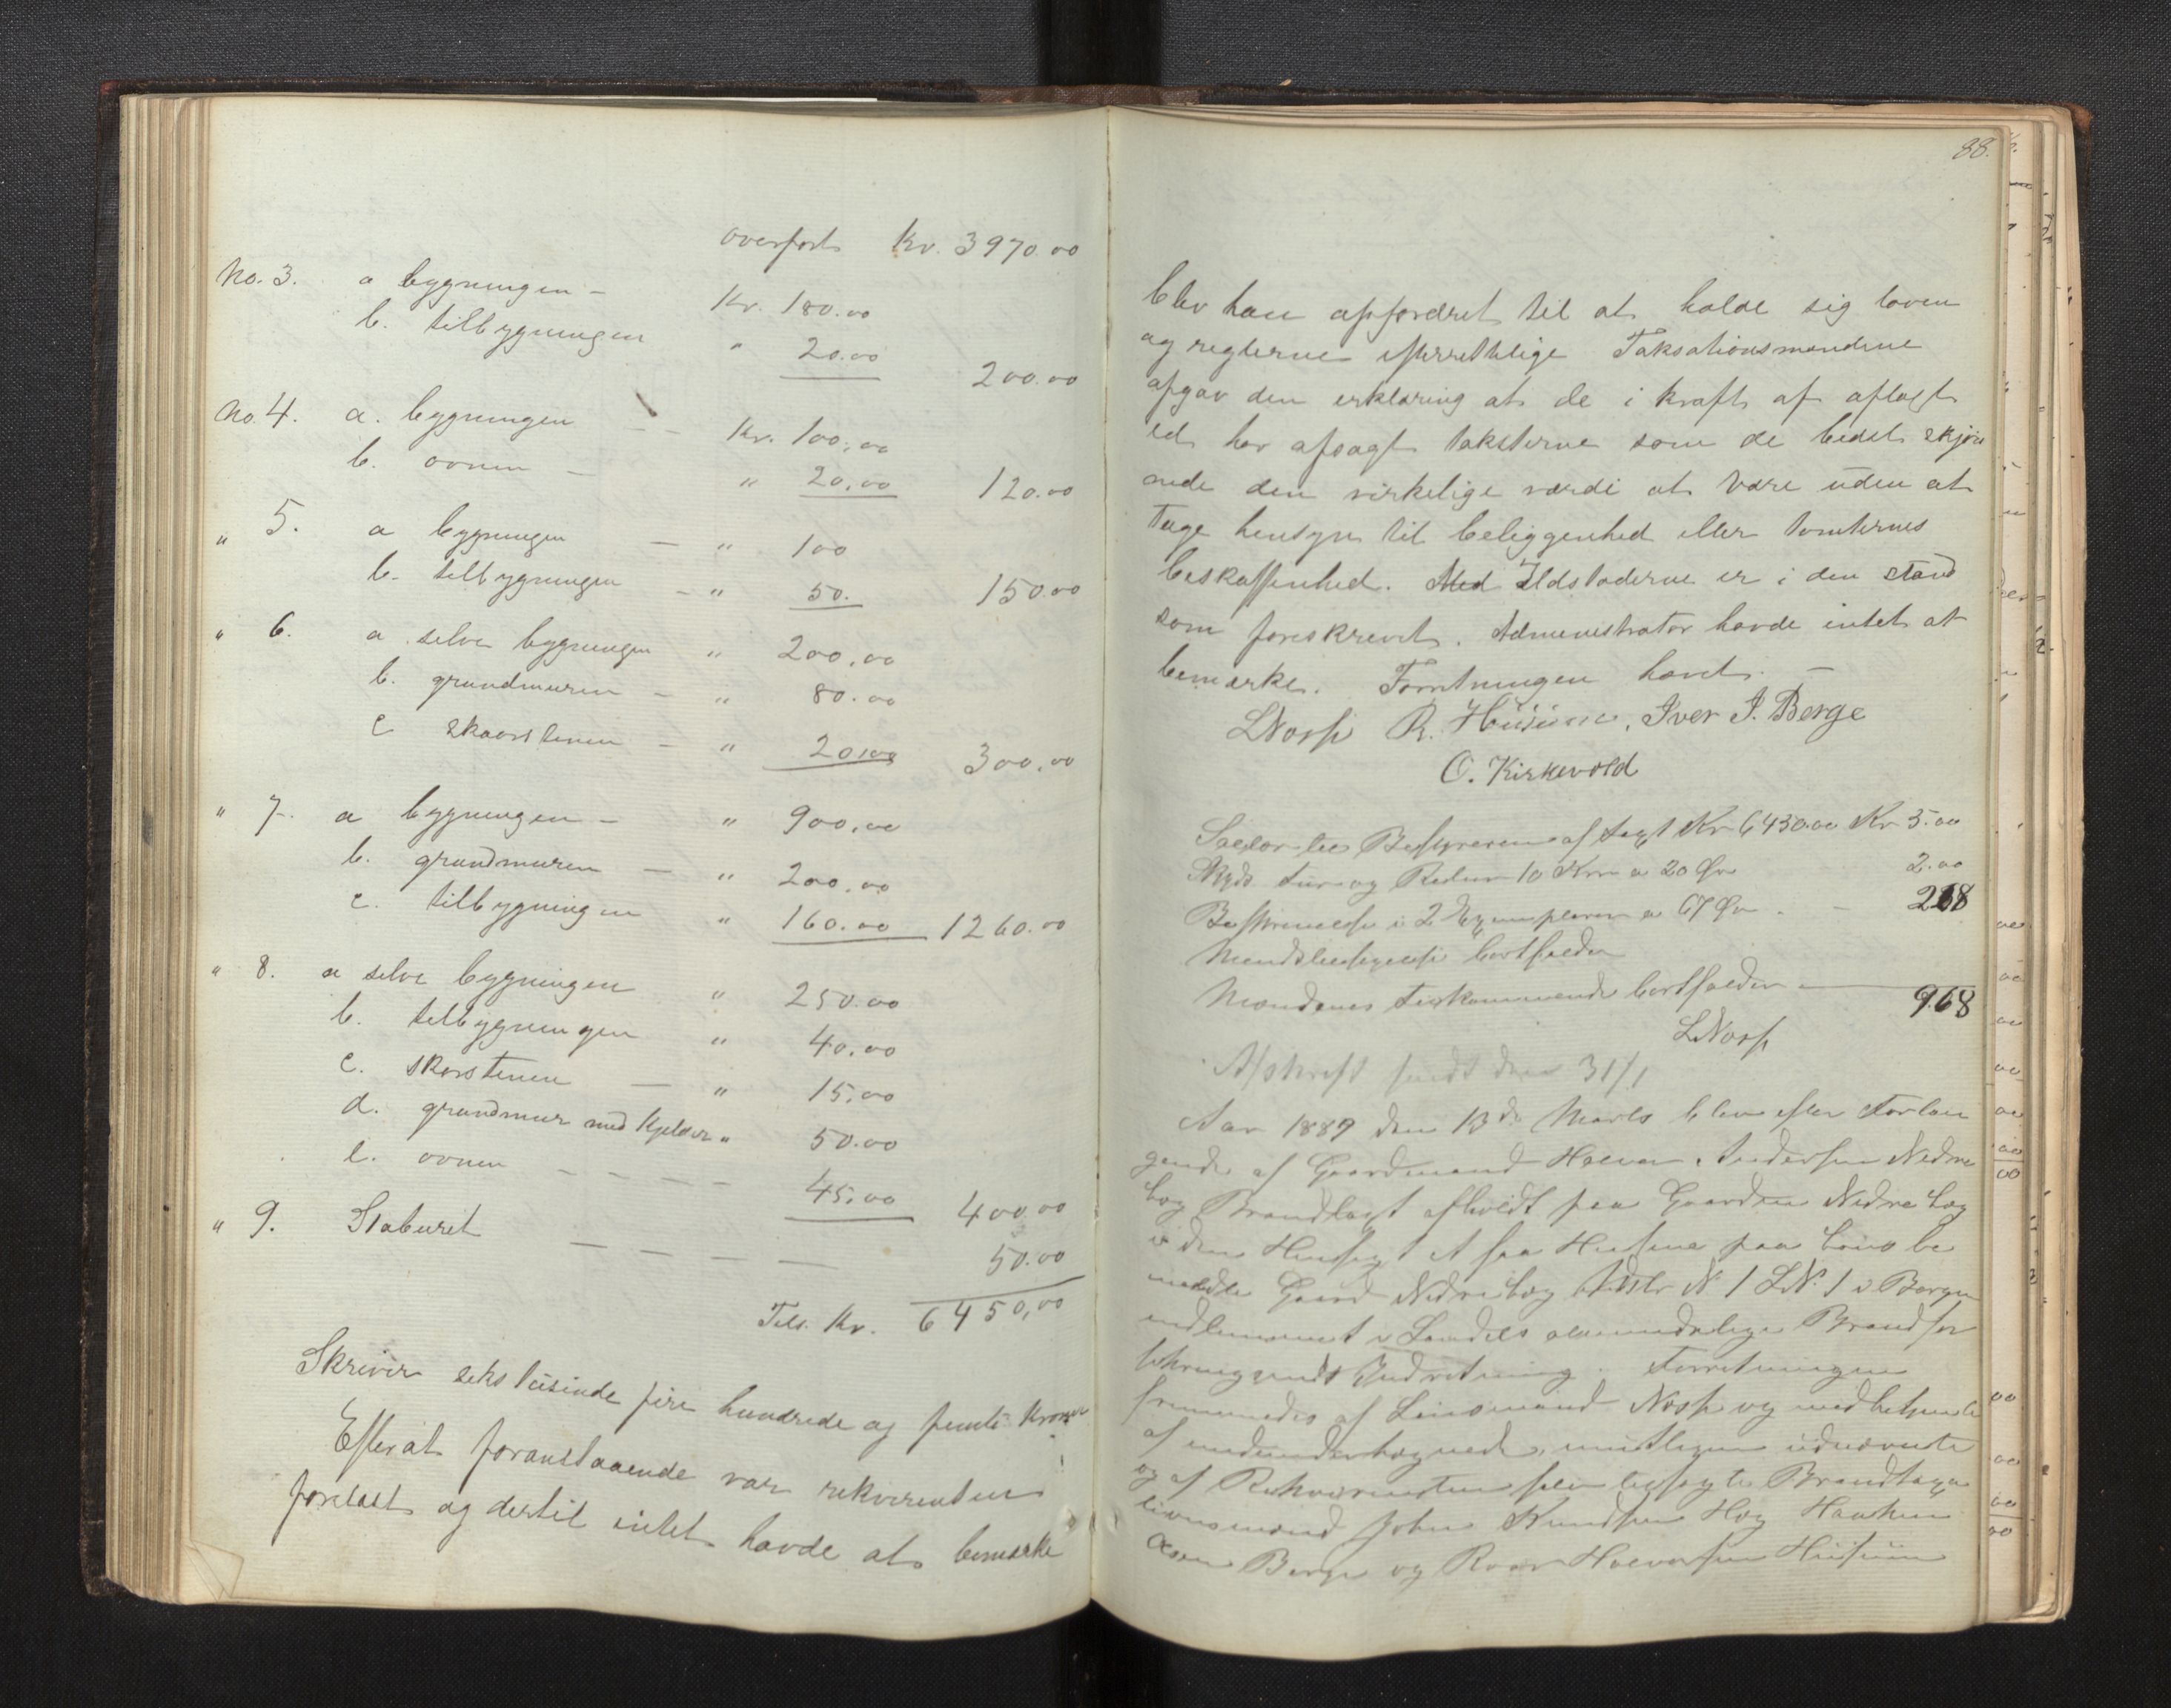 overført Kr. 3970.00
No. 3. a bygningen – Kr. 180.00
b. tilbygningen " 20.00 200.00
No. 4. a. bygningen – – Kr. 100,00
b. ovnen – " 20,00 120.00
" 5. a bygningen – " 100
b. tilbygningen – " 50. 150.00
" 6. a selve bygningen " 200,00
b. grundmuren – " 80.00
c skaarstenen – " 20,00 300,00
" 7. a bygningen – " 900,00
b. grundmuren – " 200,00
c. tilbygningen " 160.00 1260.00
" 8. a selve bygningen " 250.00
b. tilbygningen " 40,00
c. skorstenen – " 15,00
d. grundmur med kjelder " 50.00
e. ovnen – – – – 45,00 400.00
" 9. Staburet – – – – 50.00
Tils. Kr. 6450,00
Skriver seks tusinde fire hundrede og femti Kroner
Efterat foranstaaende var rekvirenten
forelæst og dertil intet havde at bemærke
88.
blev han opfordret til at holde sig loven
og reglerne efterrettelige Taksationsmændene
afgav den erklæring at de i kraft af aflagt
ed har afsagt taksterne som de bedst skjøn
nede den virkelige værdi at være uden at
tage hensyn til beliggenhed eller tomternes
beskaffenhed. Med Ildstederne er i den stand
som foreskrevet. Administrator havde intet at
bemærke. Forretningen hævet. –
LNossp R. Husum, Iver I. Berge
O. Kirkevold
Salær til Bestyreren af taxt Kr 6430.00 Kr 5.00
Skyds tur og Retur 10 Km a 20 Øre 2.00
Beskrivelse i 2 Exemplarer a 67 Øre . – 268
bortfalder
Mændenes tilkommende bortfalder – 9.68
LNossp
Afskrift sendt den 31/1
Aar 1889 den 13de Marts blev efter Forlan
gende af Gaardmand Halvor Andersen Nedre
Eeg Brandtaxt afholdt paa Gaarden Nedre
i den Hensigt at faa Husene paa be
meldte Gaard Nedre Matr N. 1 LN. 1 i Borgen
indlemmet i Landets almindelige Brandfor
sikrings Indretning. Forretningen
fremmedes af Lensmand Nossp og
af undertegnede, udnævnte
og af Rekvirenten Brandtaxa
tionsmænd John Knudsen Haaken
Olsen Berge og Roar Halvorsen Husum